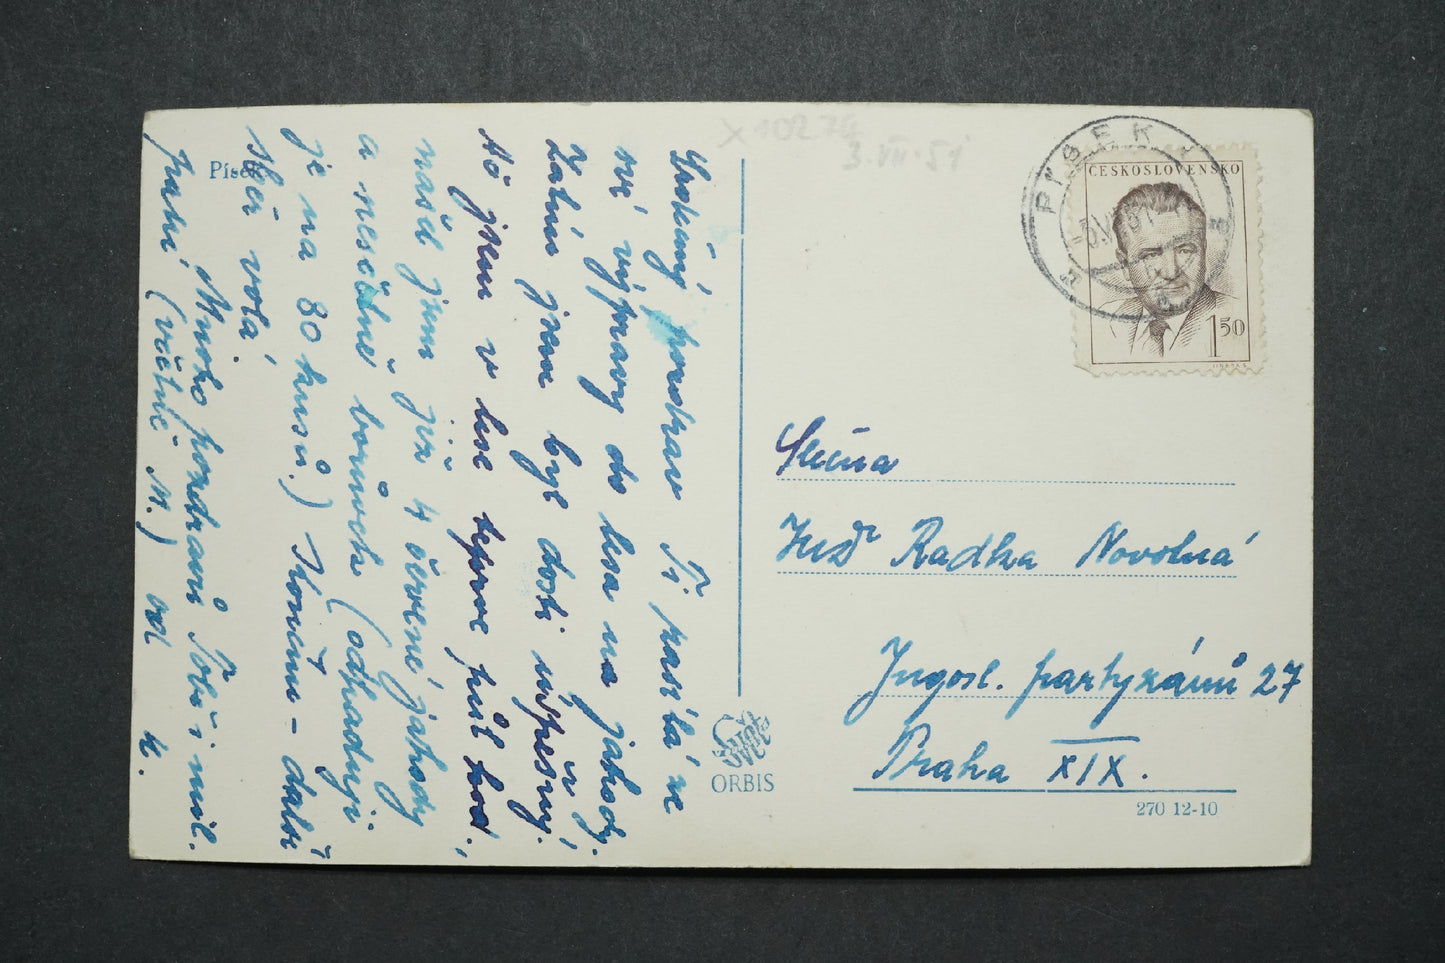 Písek
Srdečný pozdrav Ti posílá ze
své výpravy do lesa na jahody.
Zatím jsem byl dosti úspěšný.
Až jsem v lese teprve půl hod.,
našel jsem již 4 červené jahody
a nesčetně borůvek (odhaduji
je na 80 kusů.) Končím - další
sběr volá.
Mnoho pozdravů Tobě i mil.
paní (včetně M.) od K.
x 10276
3.VII.51
PÍSEK
ČESKOSLOVENSKO
1 50
Slečna
Inž Radka Novotná
Jugosl. partyzánů 27
Praha XIX.
ORBIS
270 12-10